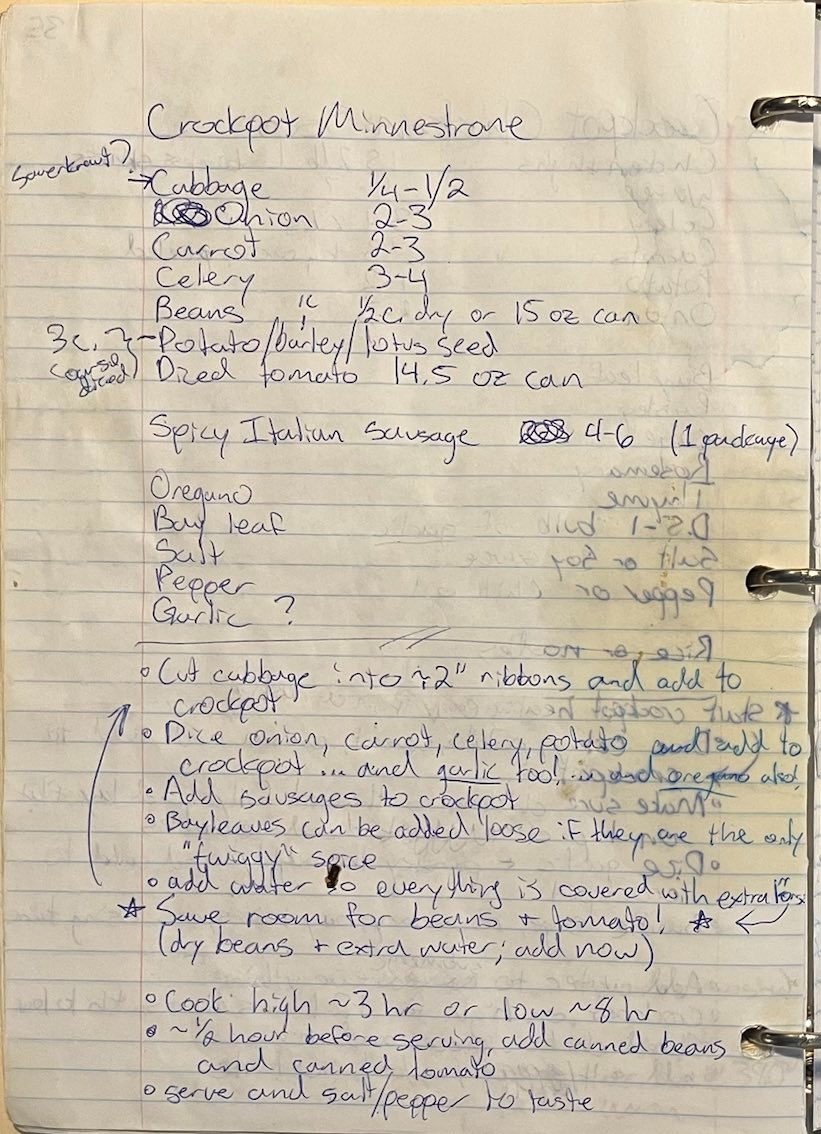 Crockpot Minnestrone
Sauerkraut?
→Cabbage 1/4-1/2
Onion 2-3
Carrot 2-3
Celery 3-4
Beans 1/2c. dry or 15 oz can
3c. ?-Potato/barley/lotus seed
diced)
Diced tomato 14.5 oz can
Spicy Italian Sausage 4-6 (1 package)
Oregano
Bay leaf
Salt
Pepper
Garlic ?
◦ Cut cabbage into ~2" ribbons and add to
crockpot
◦ Dice onion, carrot, celery, potato and add to
crockpot ... and garlic too! ... and oregano also!
◦ Add sausages to crockpot
◦ Bayleaves can be added loose if they are the only
"twiggy" spice
◦ add water so everything is covered with extra 1"
☆ Save room for beans + tomato! ☆ ←
(dry beans + extra water; add now)
◦ Cook high ~3 hr or low ~8 hr
◦ ~1/2 hour before serving, add canned beans
and canned tomato
◦ serve and salt/pepper to taste